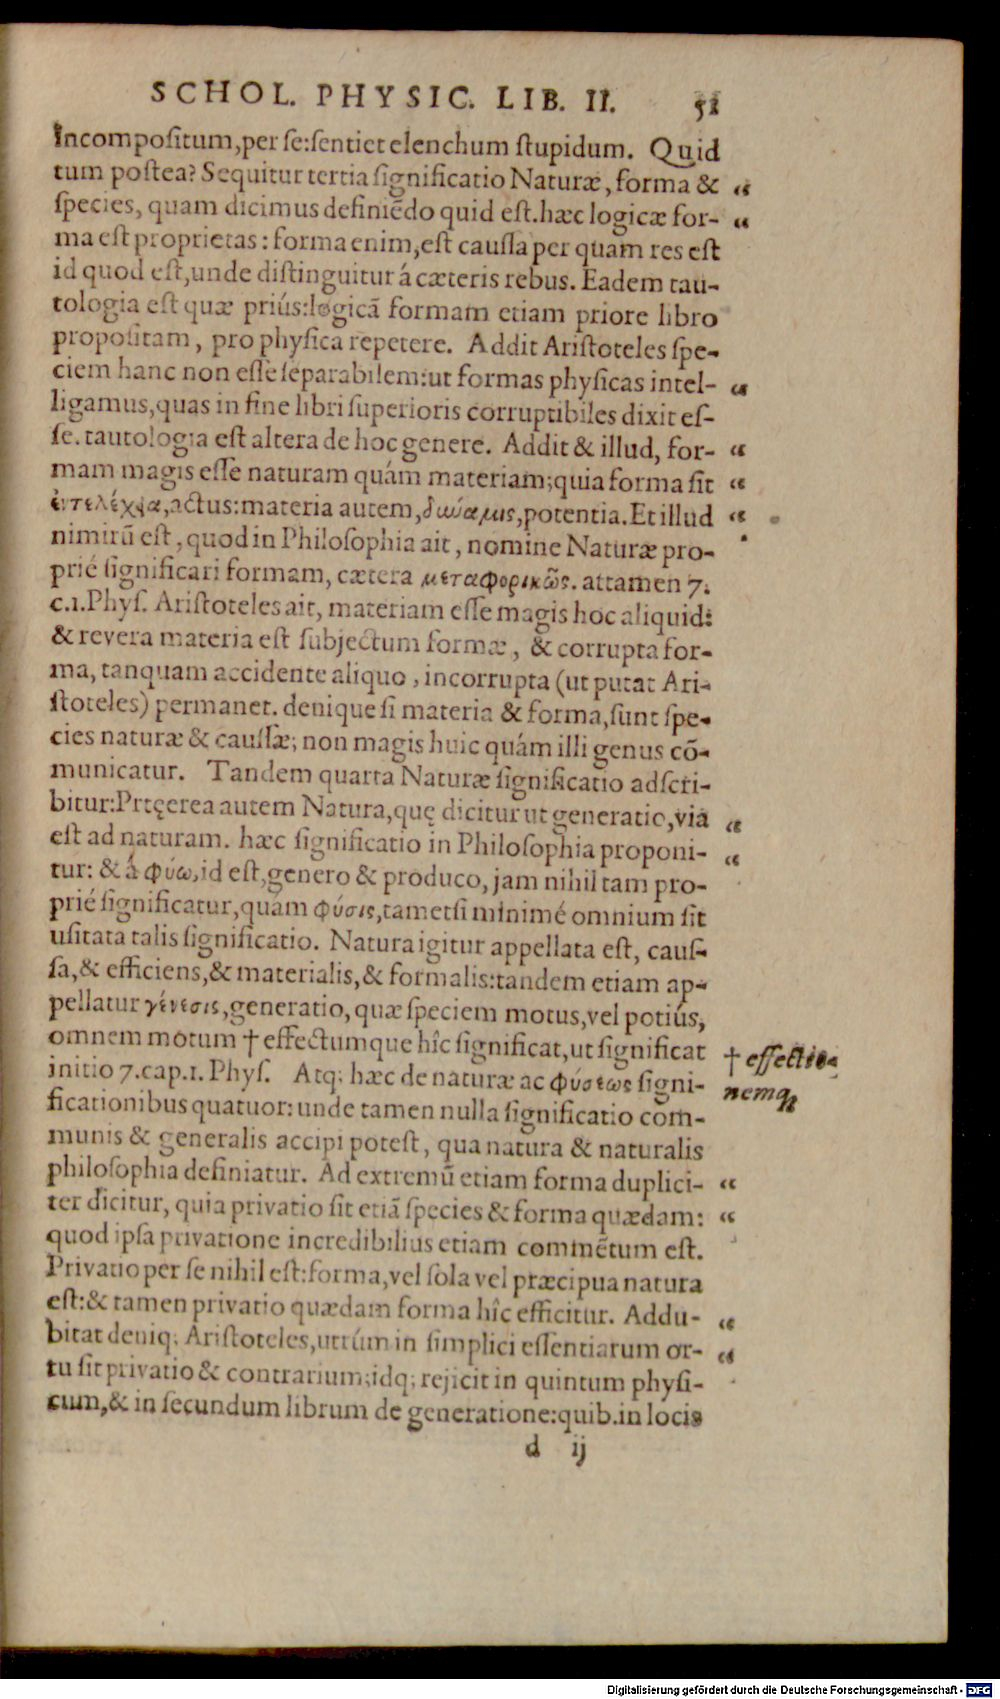 SCHOL. PHYSIC. LIB. II. 51
Incompositum,per se:sentiet elenchum stupidum. Quid
tum postea? Sequitur tertia significatio Naturæ, forma & “
species, quam dicimus definiẽdo quid est.hæc logicæ for- “
ma est proprietas: forma enim,est caussa per quam res est
id quod est,unde distinguitur á cæteris rebus. Eadem tau-
tologia est quæ priús:logicã formam etiam priore libro
propositam, pro physica repetere. Addit Aristoteles spe-
ciem hanc non esse separabilem:ut formas physicas intel- “
ligamus,quas in fine libri superioris corruptibiles dixit es-
se. tautologia est altera de hoc genere. Addit & illud, for- “
mam magis esse naturam quám materiam;quia forma sit “
ἐντελέχεια,actus:materia autem,δύναμις,potentia.Et illud “
nimirũ est, quod in Philosophia ait, nomine Naturæ pro-
prié significari formam, cætera μεταφορικῶς. attamen 7.
c.1.Phys. Aristoteles ait, materiam esse magis hoc aliquid:
& revera materia est subjectum formæ, & corrupta for-
ma, tanquam accidente aliquo, incorrupta (ut putat Ari-
stoteles) permanet. denique si materia & forma,sunt spe-
cies naturæ & caussæ; non magis huic quám illi genus cõ-
municatur. Tandem quarta Naturæ significatio adscri-
bitur:Prtęerea autem Natura,quę dicitur ut generatio,via “
est ad naturam. hæc significatio in Philosophia proponi- “
tur: & á φύω,id est,genero & produco, jam nihil tam pro-
prié significatur,quám φύσις,tametsi minimé omnium sit
usitata talis significatio. Natura igitur appellata est, caus-
sa,& efficiens,& materialis,& formalis:tandem etiam ap-
pellatur γένεσις,generatio, quæ speciem motus,vel potiús,
omnem motum † effectumque hîc significat,ut significat
initio 7.cap.1. Phys. Atq; hæc de naturæ ac φύσεως signi-
† effectio-
nemq;
ficationibus quatuor: unde tamen nulla significatio com-
munis & generalis accipi potest, qua natura & naturalis
philosophia definiatur. Ad extremũ etiam forma duplici- “
ter dicitur, quia privatio sit etiã species & forma quædam: “
quod ipsa privatione incredibilius etiam commẽtum est.
Privatio per se nihil est:forma,vel sola vel præcipua natura
est:& tamen privatio quædam forma hîc efficitur. Addu- “
bitat deniq; Aristoteles,utrúm in simplici essentiarum or- “
tu sit privatio & contrarium;idq; rejicit in quintum physi-
cum,& in secundum librum de generatione:quib.in locis
d ij
Digitalisierung gefördert durch die Deutsche Forschungsgemeinschaft - DFG